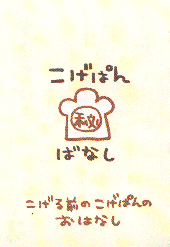 こげぱん
秘
ばなし
こげる前のこげぱんの
おはなし